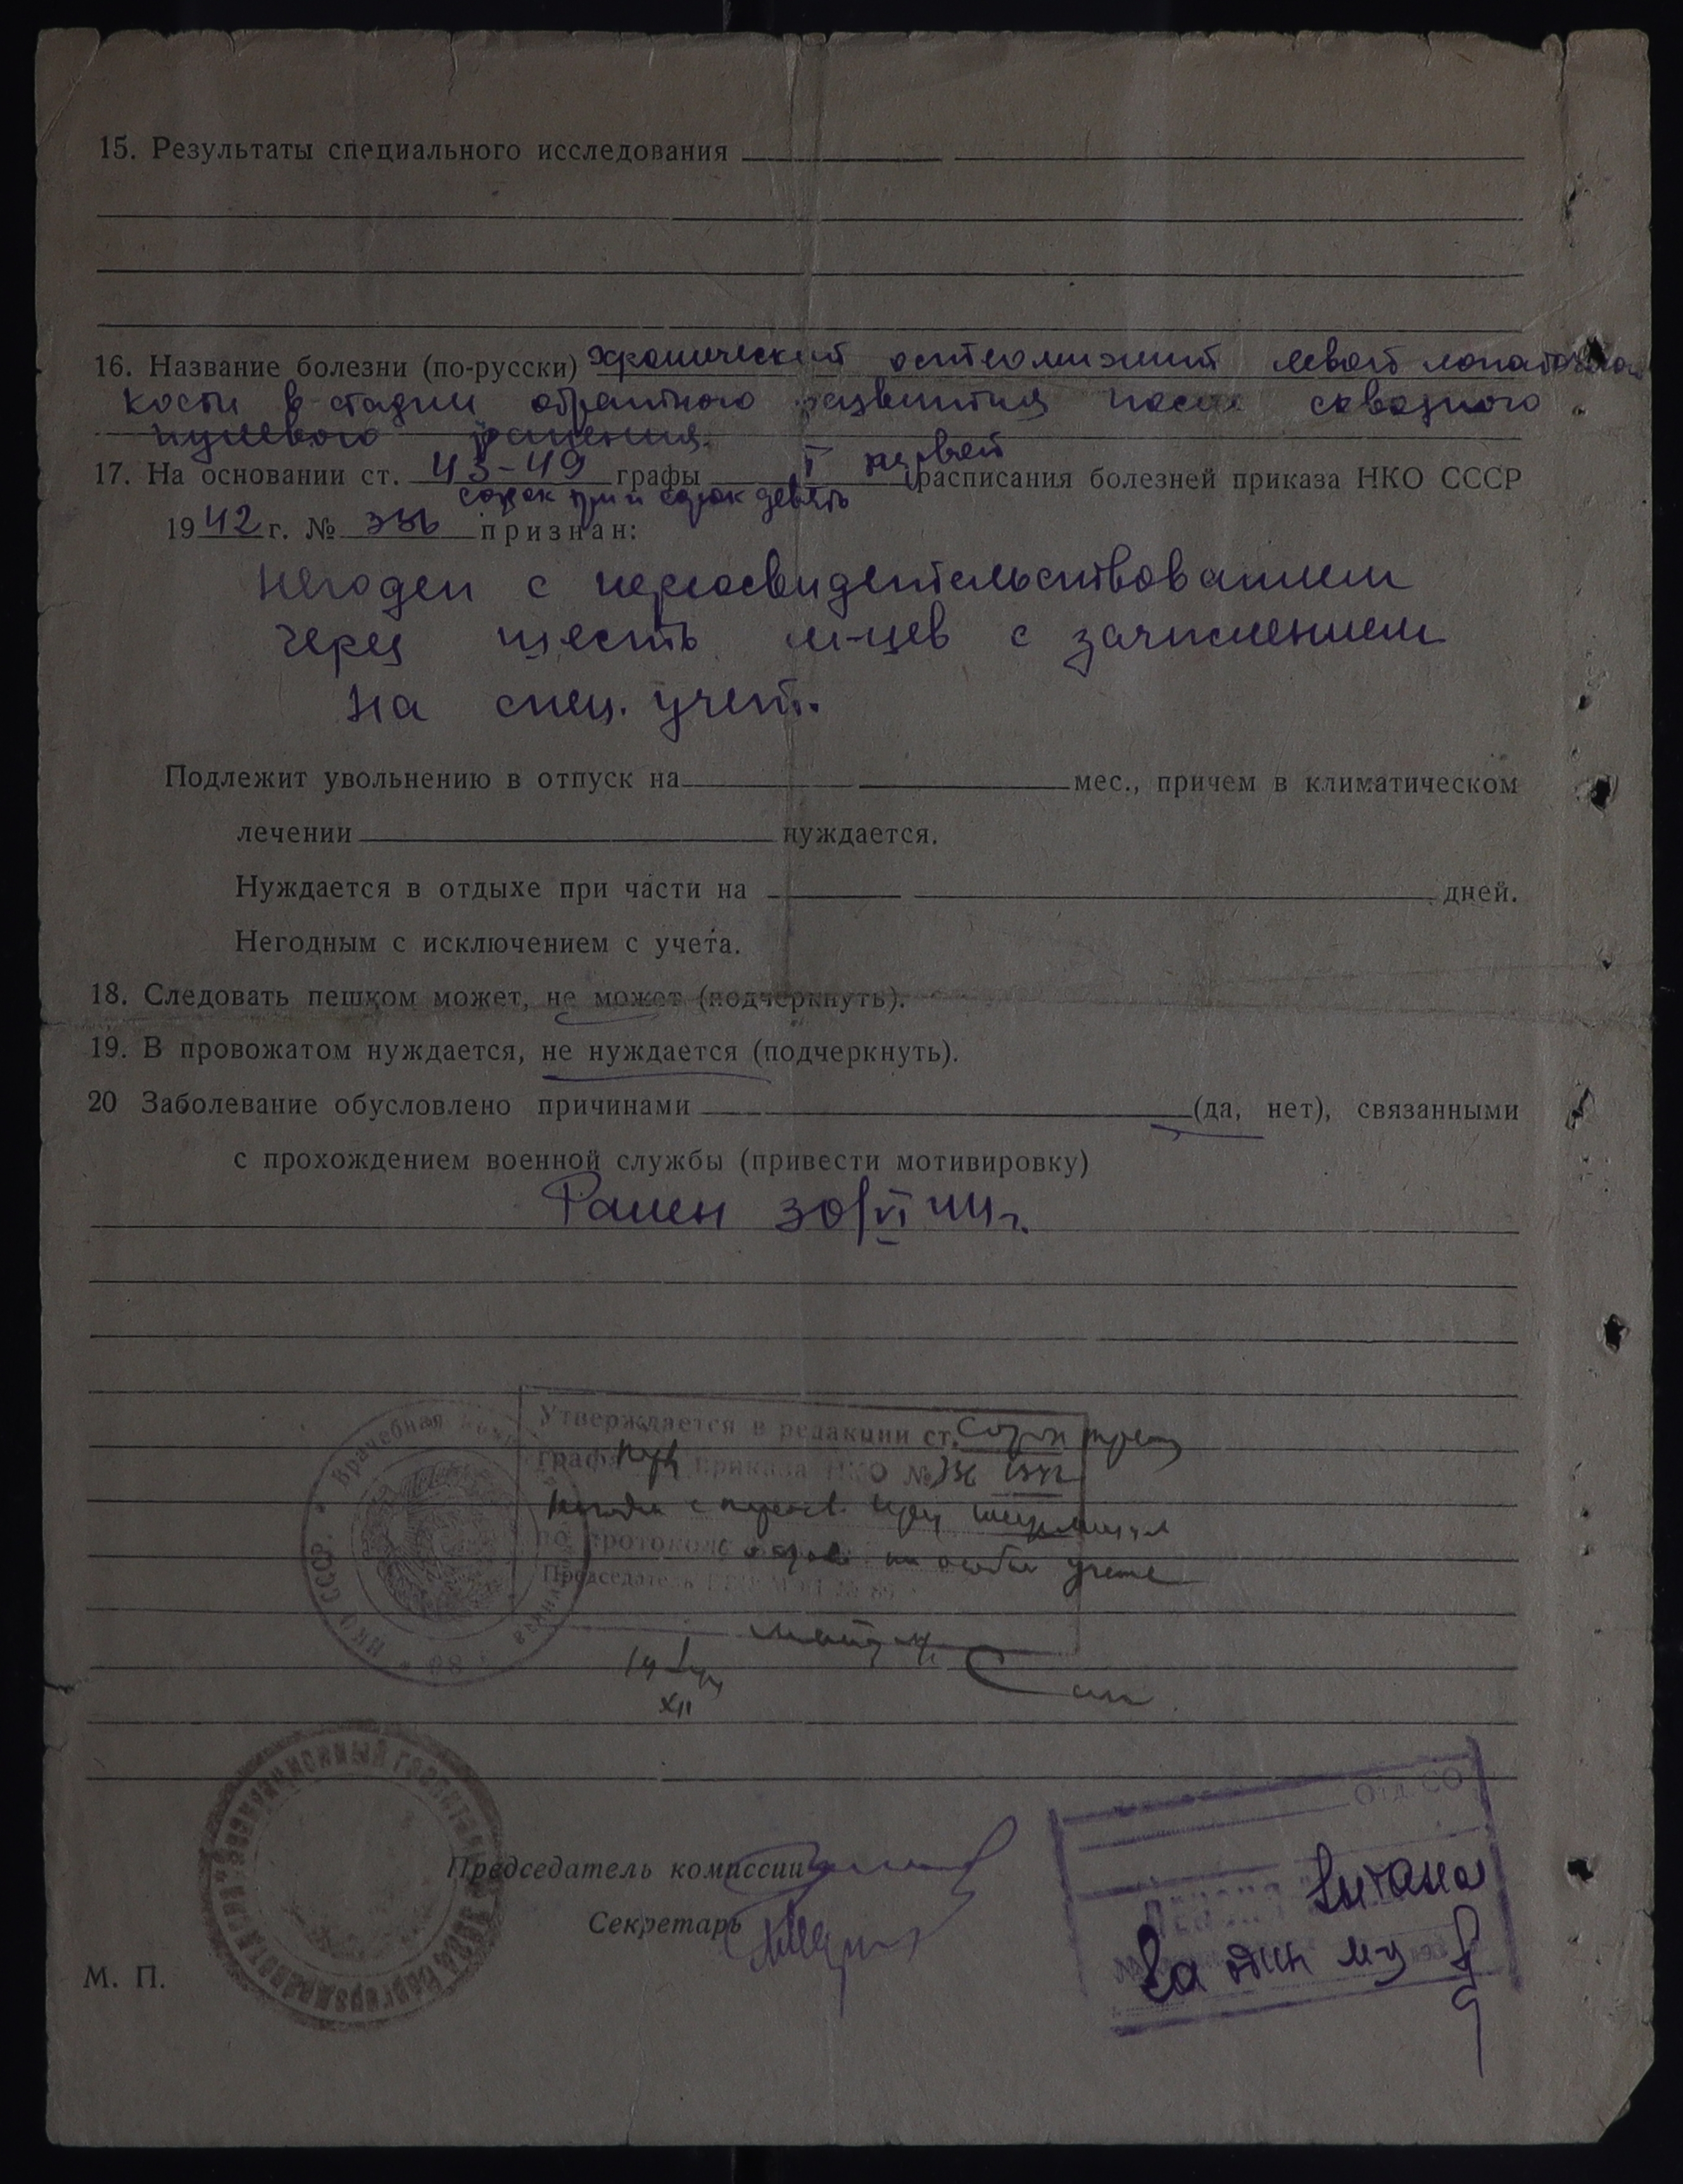 15. Результаты специального исследования
16. Название болезни (по-русски) хронический остеомиэлит левой лопаточной
кости в стадии обратного развития после сквозного
пулевого ранения.
17. На основании ст. 43-49 графы I первой расписания болезней приказа НКО СССР
сорок три и сорок девять
1942 г. № 336 признан:
Негоден с переосвидетельствованием
через шесть м-цев с зачислением
на спец. учет.
Подлежит увольнению в отпуск на мес., причем в климатическом
лечении нуждается.
Нуждается в отдыхе при части на дней.
Негодным с исключением с учета.
18. Следовать пешком может, не может (подчеркнуть).
19. В провожатом нуждается, не нуждается (подчеркнуть).
20 Заболевание обусловлено причинами (да, нет), связанными
с прохождением военной службы (привести мотивировку)
Ранен 30/VI 44 г.
Врачебная НКО СССР
Утверждается в редакции ст. Сорок
графы приказа НКО № 336 1942
Негоден с переосв. через шесть
по протоколу на особом учете
Председатель
XII
Эвакуационный госпиталь
Отд. СО
Председатель комиссии
Секретарь
За один м-ц
М. П.